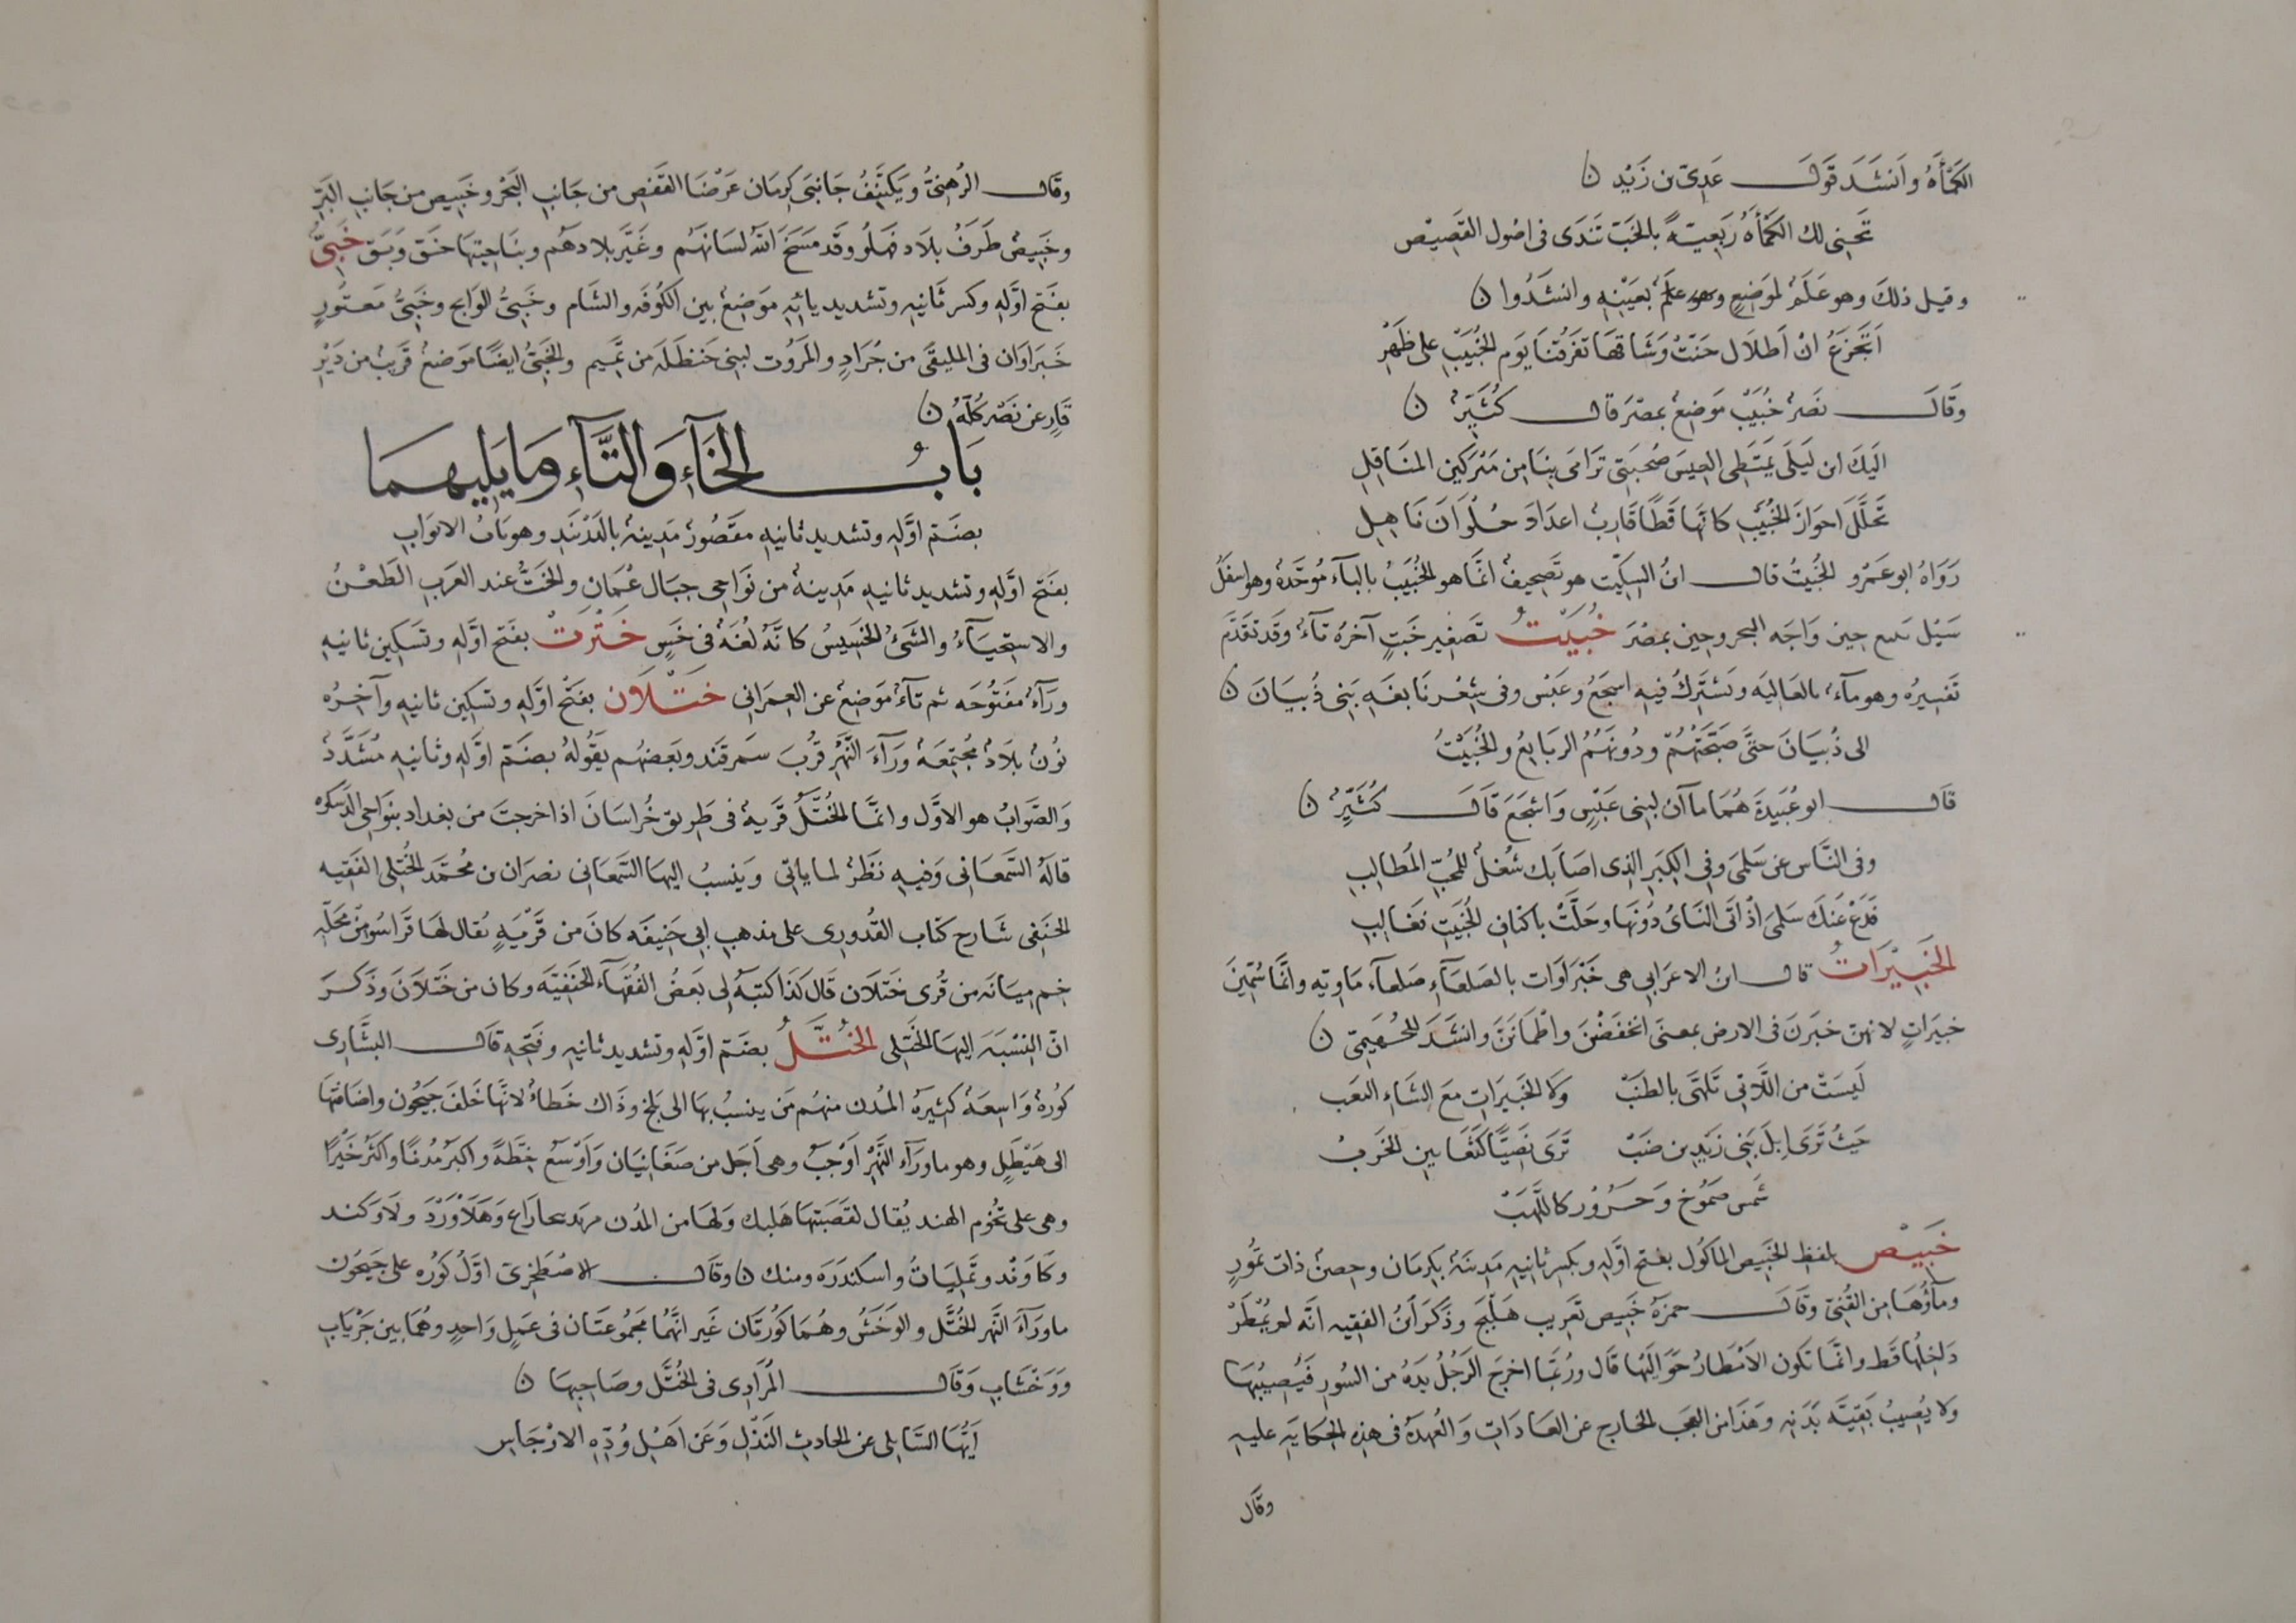 الكَمْأَةُ وأنشَدَ قَولَ عَدِيّ بن زَيْد ن
تَجْنِى لك الكَمْأَةَ رَبعيّةً بالخَبّ تَندَى فى اصُول القَصِيْص
وقيل ذلكَ وهو عَلَمٌ لموَضِعٍ وهو علمٌ بعَيْنِهِ وانشَدُوا ن
اَتَجْزَعُ انْ اَطلَال حَنَتْ وَشَاقهَا تفرّقنَا يَوم الخُبَيْب على ظَهْرِ
وَقَالَ نصَرٌ خُبَيْب مَوضِعٌ بمصْرَ قال كُثَيّرٌ ن
اليَكَ ابن لَيلَى تمَتطى العِيسَ صُحبَتى تَرَامَى بِنَا من مَبْرَكَين المنَاقِل
تَخلَّلَ احوَازَ الخُبَيْب كانّها قَطًا قَارِبٌ اعدَادَ حُلْوَانَ نَاهِل
رَوَاهُ ابو عَمْرو الخُبَيتُ قال ابنُ السِكّيت هو تَصحِيفٌ انّما هو الخُبَيبُ بالبآء مُوحّدةٌ وهو اسفَلُ
سَيْل حين وَاجَه البحر وحِين بمصْرَ خُبَيْتُ تصَغير خَبتٍ آخرهُ تآءٌ وقد تقَدّمَ
تَفسِيرُه وهو مآءٌ بالعَاليَه يَشتَرِكُ فيهِ اشجَعُ وعَبْس وفى شِعْر نَابغَه بَنِى ذُبيَانَ ن
الى ذُبيَانَ حتَّى صَبَّحَتْهُمْ ودُونَهُمُ الربَايعُ والخُبَيْتُ
قال ابو عُبَيدةَ هُمَا مآآن لبنى عَبْسٍ وَاشجَعَ قَالَ كُثَيّرٌ ن
وفى النَّاس عن سَلمَى وفى الكِبَرِ الذِى اصَابَك شُغلٌ للمُحبّ المَطَالِبِ
فَدَعْ عَنكَ سَلمَى اذْ اتَى النَاىُ دُونَها وحَلَّتْ باكنَافِ الخُبَيْتِ فغَالِبِ
الخَبِيْرَاتُ قال ابنُ الاعرَابى هى خَبْرَاوَات بالصَلعَآءِ صَلعَآء مَاويّه وانّما سُمّينَ
خبِرَاتٍ لانهنّ خبَرنَ فى الارض بمعنَى انخفَضْنَ واطْمأنَنَّ وانشَدَ للجُهَيمىّ ن
لَيسَتْ من اللَّاتى تَلهَّى بالطنَبْ وَلا الخَبِيرَاتِ مَعَ الشَاءِ المغَب
حَيثُ تَرَى اِبلَ بَنِى زَيدِ بن ضَبّ تَرَى نَصِيّا كَثّفًا بين الخرَبْ
شَمس صَمُوخ وَحَرُوُر كاللَّهَبْ
خَبِيْص بلفظ الخَبِيص الماكول بفتح اوّله وبكسر ثانيهِ مَدِينَةٌ بكِرمَان وحِصنٌ ذات تمُورٍ
ومآؤهَا من القُنىّ وقَالَ حمزَهُ خَبِيص تعَريب هَبِيْج وذَكَرَ ابنُ الفقيه انّه لم يُمْطَرْ
دَاخِلُها قط وانّما تكُون الاَمْطَارُ حَوَالَيْها قَال ورُبّمَا اخرجَ الرَجُلُ يَدَهُ من السُورِ فيُصِيبُهَا
ولا يُصِيبُ بَقيّه بَدَنِهِ وهَذَا من العجَب الخَارج عن العَادَاتِ وَالعُهدَهُ فى هذه الحِكَايَهِ عليهِ
وقَال
وقَال الرُهنىُّ ويَكتَنِفُ جَانِبَى كِرمَان عَرْضًا القفص من جَانِبِ البَحْر وخَبِيص من جَانِبِ البَرّ
وخَبِيصُ طَرَفُ بلَاد فهلُو وقَد مَسَخَ اللّهُ لسَانَهُم وغَيَّر بلادَهُم وبنَاحِيَتِهَا خبَق وبَبَق خَبِىُّ
بفَتح اوّله وكسر ثَانيهِ وتشديد يائِهِ مَوضِعٌ بين الكُوفَه والشَام وخَبِىُّ الوَالج وخَبِىُّ مَعتُورٍ
خَبرَاوَان فى الملتقَى من جُرَادٍ والمَرُّوت لبنِى حَنظَلَه من تَمِيم والخَبِىُّ ايضًا مَوضعٌ قَرِيبٌ من ذِى
قَارٍ عن نَصْرٍ كلّهُ ن
بَابُ الخَآءِ وَالتَّآءِ وَمَا يَلِيهِمَا
بضَمّ اوَّلهِ وتشديد ثانيهِ مقصُورٌ مَدِينهٌ بالدَرْبَنَدِ وهو بَابُ الابوَابِ
بفَتح اوّلهِ وتشديد ثانيهِ مَدِينهٌ من نَواحِى جبَال عُمَان والخَتُّ عند العرَبِ الطَعْنُ
والاستحيَآءُ والشَئُ الخسِيسُ كانّهُ لُغَهٌ فى خَسٍ خَتْرَتْ بفتح اوّلهِ وتَسَكِين ثانيهِ
ورَآءٌ مَفتُوحَه ثم تآءٌ مَوضِعٌ عن العِمرَانى خَتْلَان بفَتْح اوّلهِ وتسَكِين ثانيهِ وآخِرُه
نُونٌ بلَادٌ مُجتمِعَه ورَآءَ النَّهْرِ قُربَ سمَرقند وبَعضُهُم يَقُولهُ بضَمّ اوّلهِ وثانيهِ مُشَدَّدٌ
وَالصّوَابُ هو الاوَّل وانّما الخُتَّلُ قَريهٌ فى طَرِيق خُراسَانَ اذا خرجتَ من بغداد بنَواحِى الدَسكره
قالَهُ السّمعَانى وَفيهِ نظَرٌ لما ياتى ويَنسبُ اليهَا السّمعَانى نصرَان بن محُمّد الخُتّلى الفَقِيه
الحنَفى شَارح كتَاب القُدوري على مذهبِ ابى حَنِيفَه كانَ من قَرْيَهٍ يُقال لهَا قَراسُو من محَلّه
خم مِيَانَه من قُرى ختَلَان قَال كَذَا كتبَهُ لى بَعضُ الفُقهَآء الحنَفِيّه وكان من خَتْلَانَ وذَكَرَ
انّ النِسْبَهَ اليهَا الخَتلى الخُتَّلُ بضَمّ اوّلهِ وتشديد ثانيهِ وفَتحهِ قال البشَّارِى
كُورهٌ وَاسِعَهٌ كَثِيرَهُ المُدن منهُم مَن ينسبُ بهَا الى بَلخ وذَاك خَطاءٌ لانّها خَلف جَيحُون واضَافتُهَا
الى هَيْطَلٍ وهو ما ورَآء النَّهْر اَوْجَبُ وهى اَجَل من صَغَانيَان وَاوْسَعُ خطّهً واكبرُ مُدُنًا واكثرُ خَيْرًا
وهى على تخُوم الهند يُقال لقصَبَتها هَلبك ولهَا من المدُن وَهَلَاوَرْدَ ولَاوكند
وكَاوَنْد وتَمِليَاتُ واسكندَرَه ومنك ن وقَال الاصْطخرىّ اوّلُ كُورَه على جَيحُون
ما ورَآءَ النَّهر الخُتَّل والوَخَشُ وهُمَا كُورتَان غَير انَّهُمَا مَجمُوعَتَان فى عَمَلٍ وَاحدٍ وهُمَا بين جَرْيَابِ
وَوَخشَابِ وقَال المُرَادِى فى الخُتَّل وصَاحِبِهَا ن
اَيُّها السَّايلى عن الحارِث النَذْل وَعَن اَهْل وُدِّهِ الارْجَاسِ